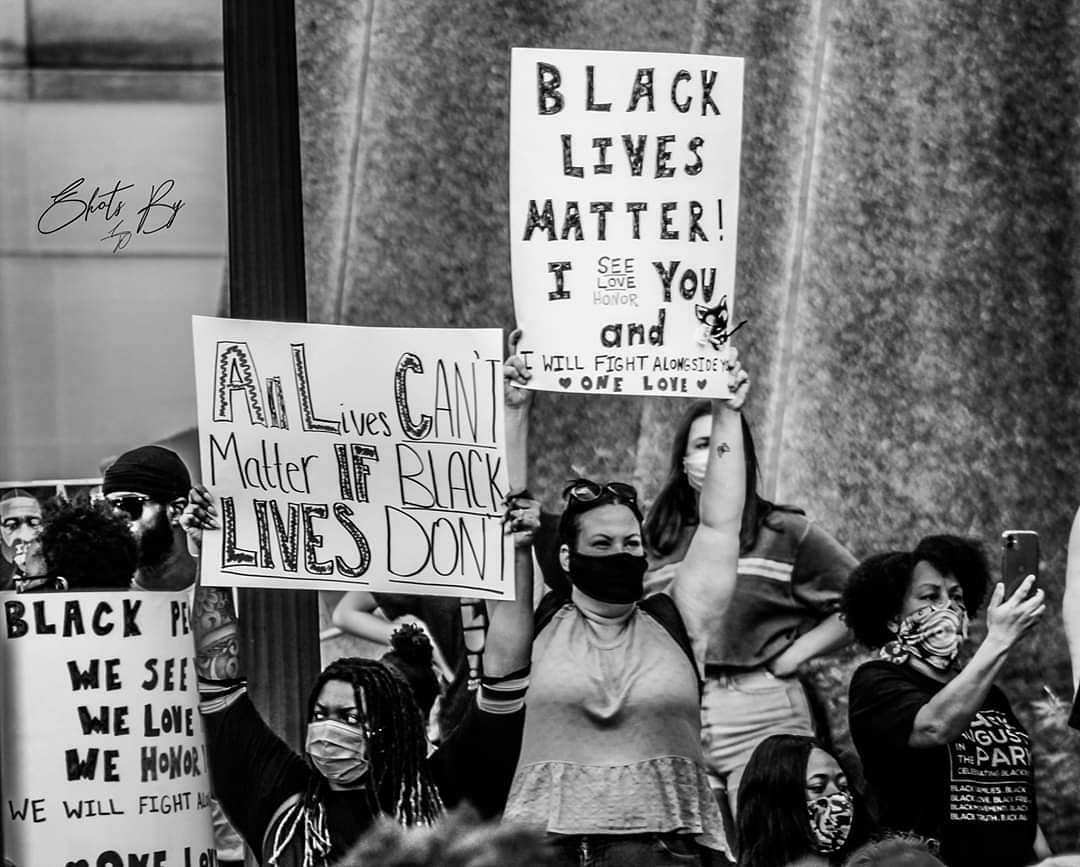 Shots By
BLACK
LIVES
MATTER!
I SEE LOVE HONOR YOU
and
I WILL FIGHT ALONGSIDE
♥ ONE LOVE ♥
All Lives CAN'T
Matter IF BLACK
LIVES DON'T
BLACK
WE SEE
WE LOVE
WE HONOR
WE WILL FIGHT
ONE
IN THE PARK
CELEBRATING BLACK
BLACK FAMILIES. BLACK
BLACK LOVE. BLACK
BLACK MOVEMENT. BLACK
BLACK TRUTH. BLACK